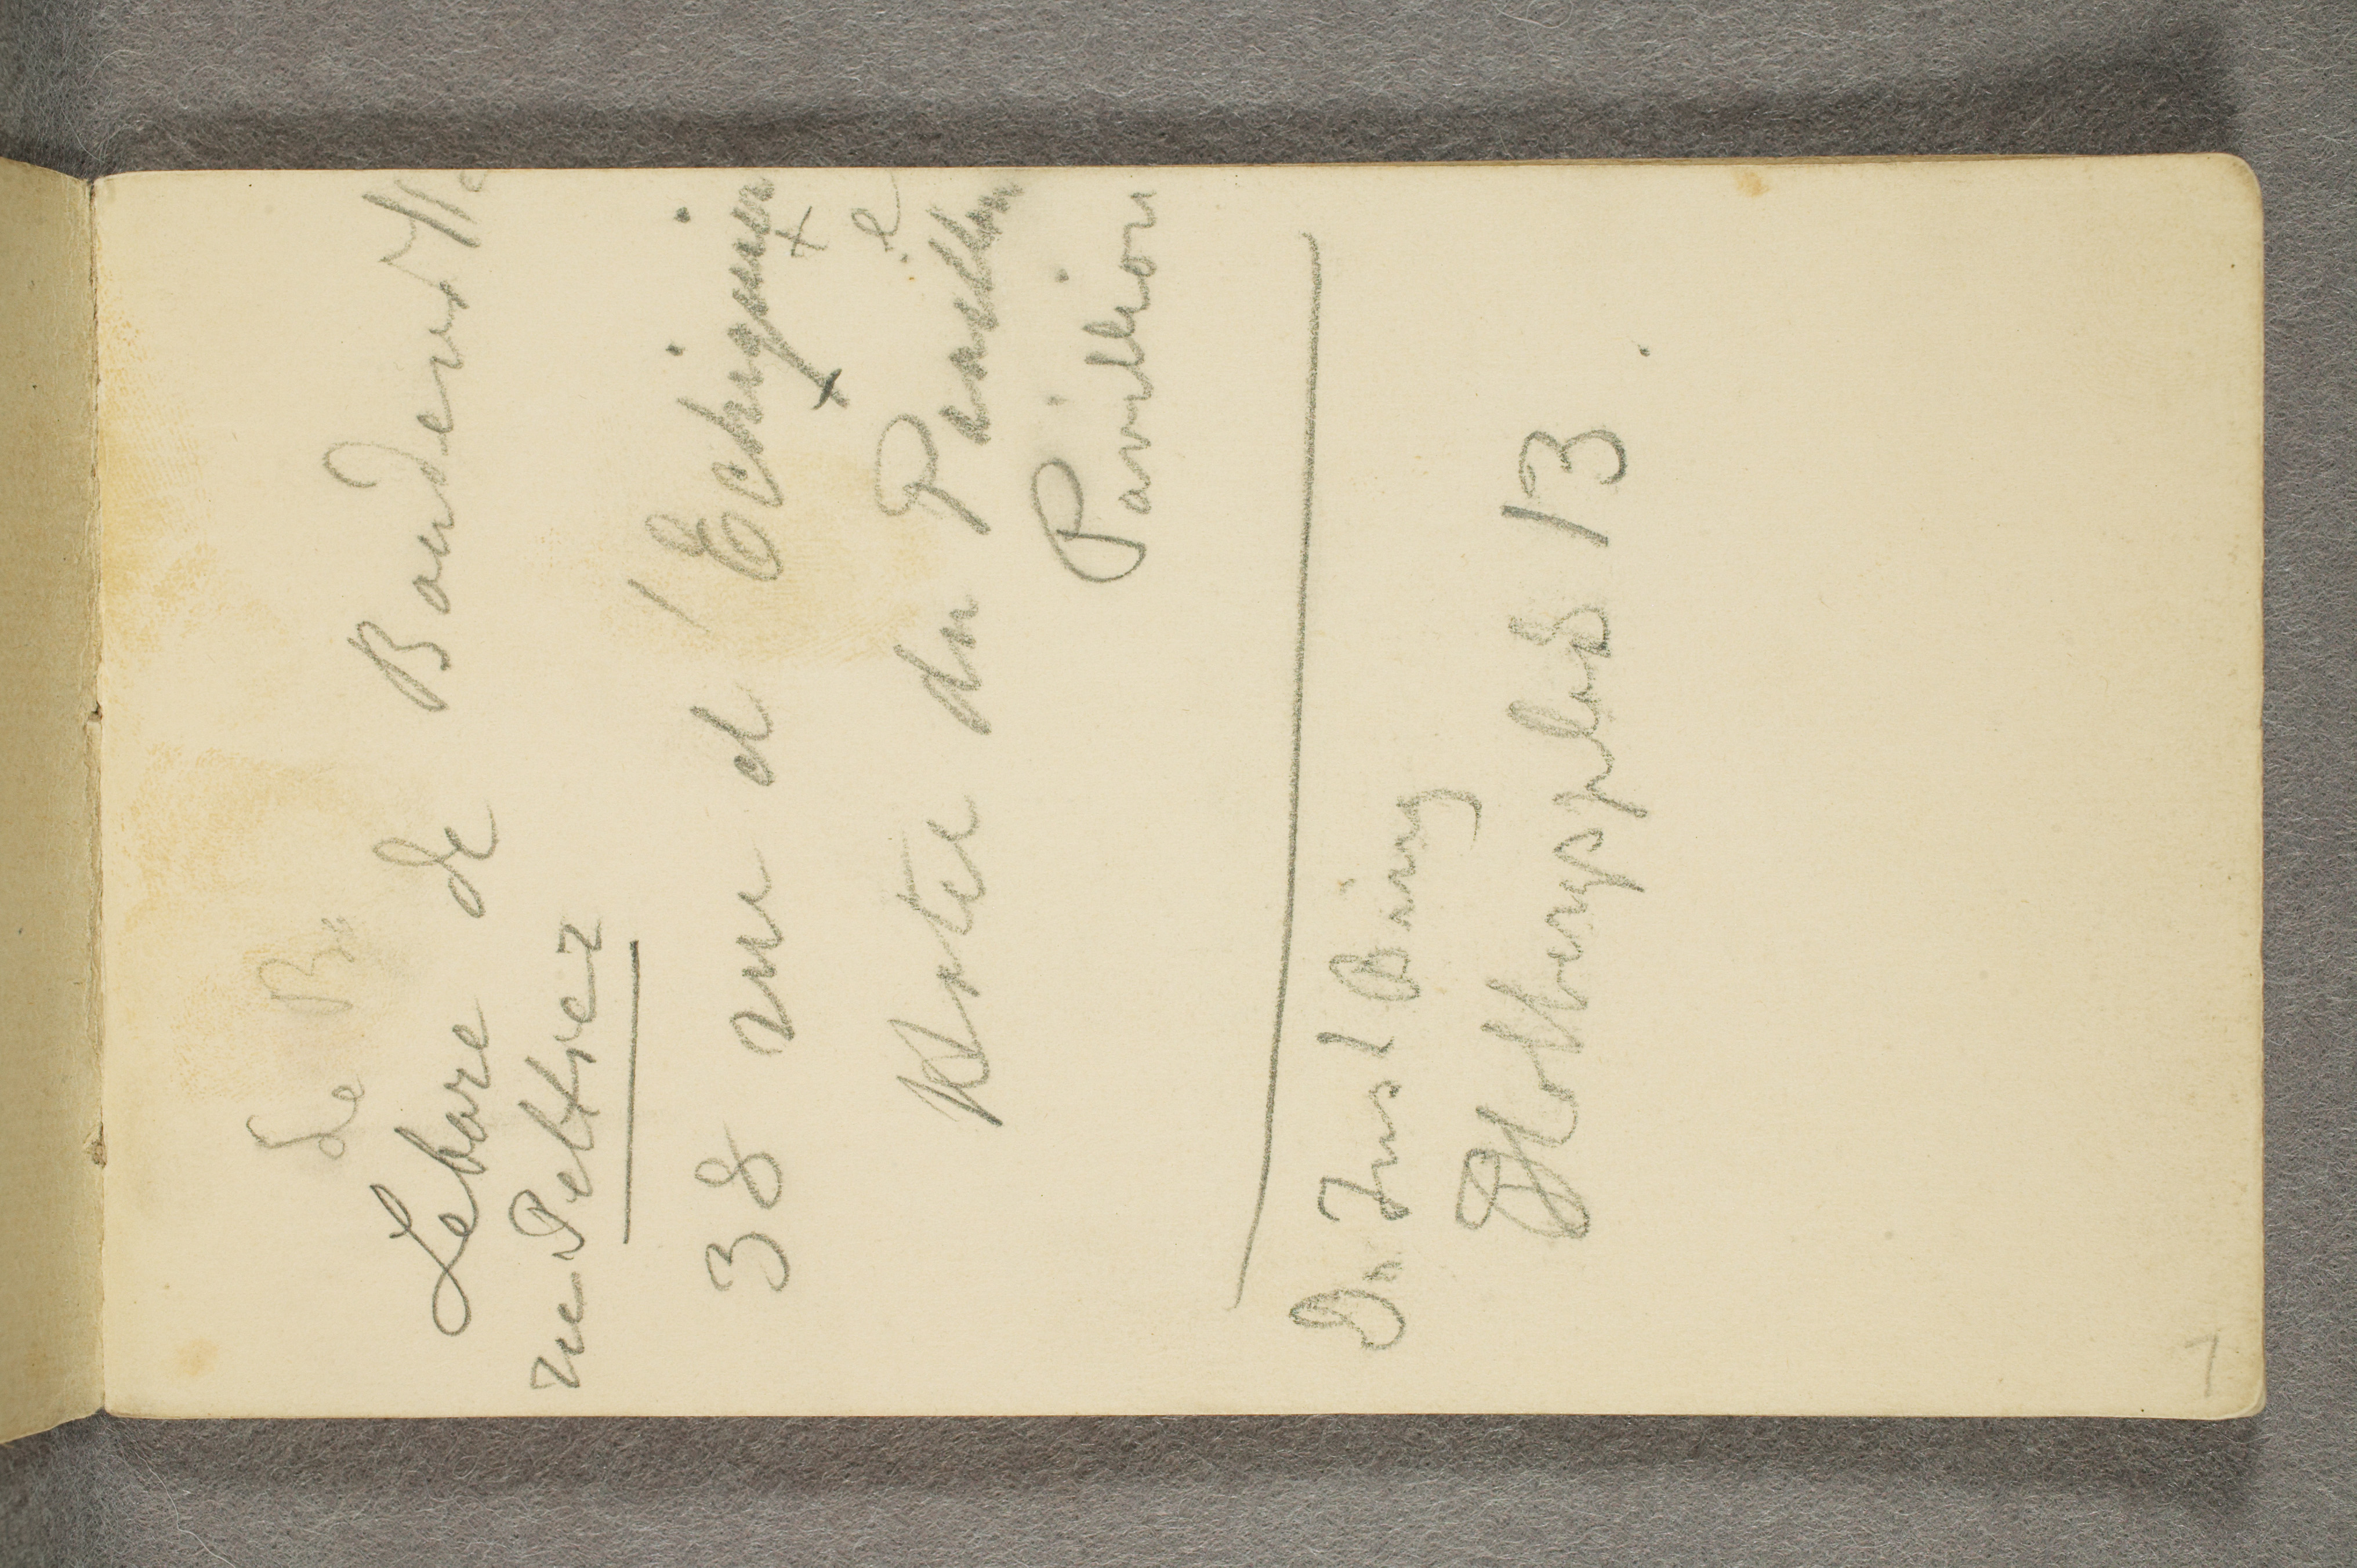 Le B
Lebare de Bouderi
rue Peltrier
38 rue d'Echiquier
x x
Note du Pavillon
Pavillion
Dr Just Bing
Holbergsplads 13
7